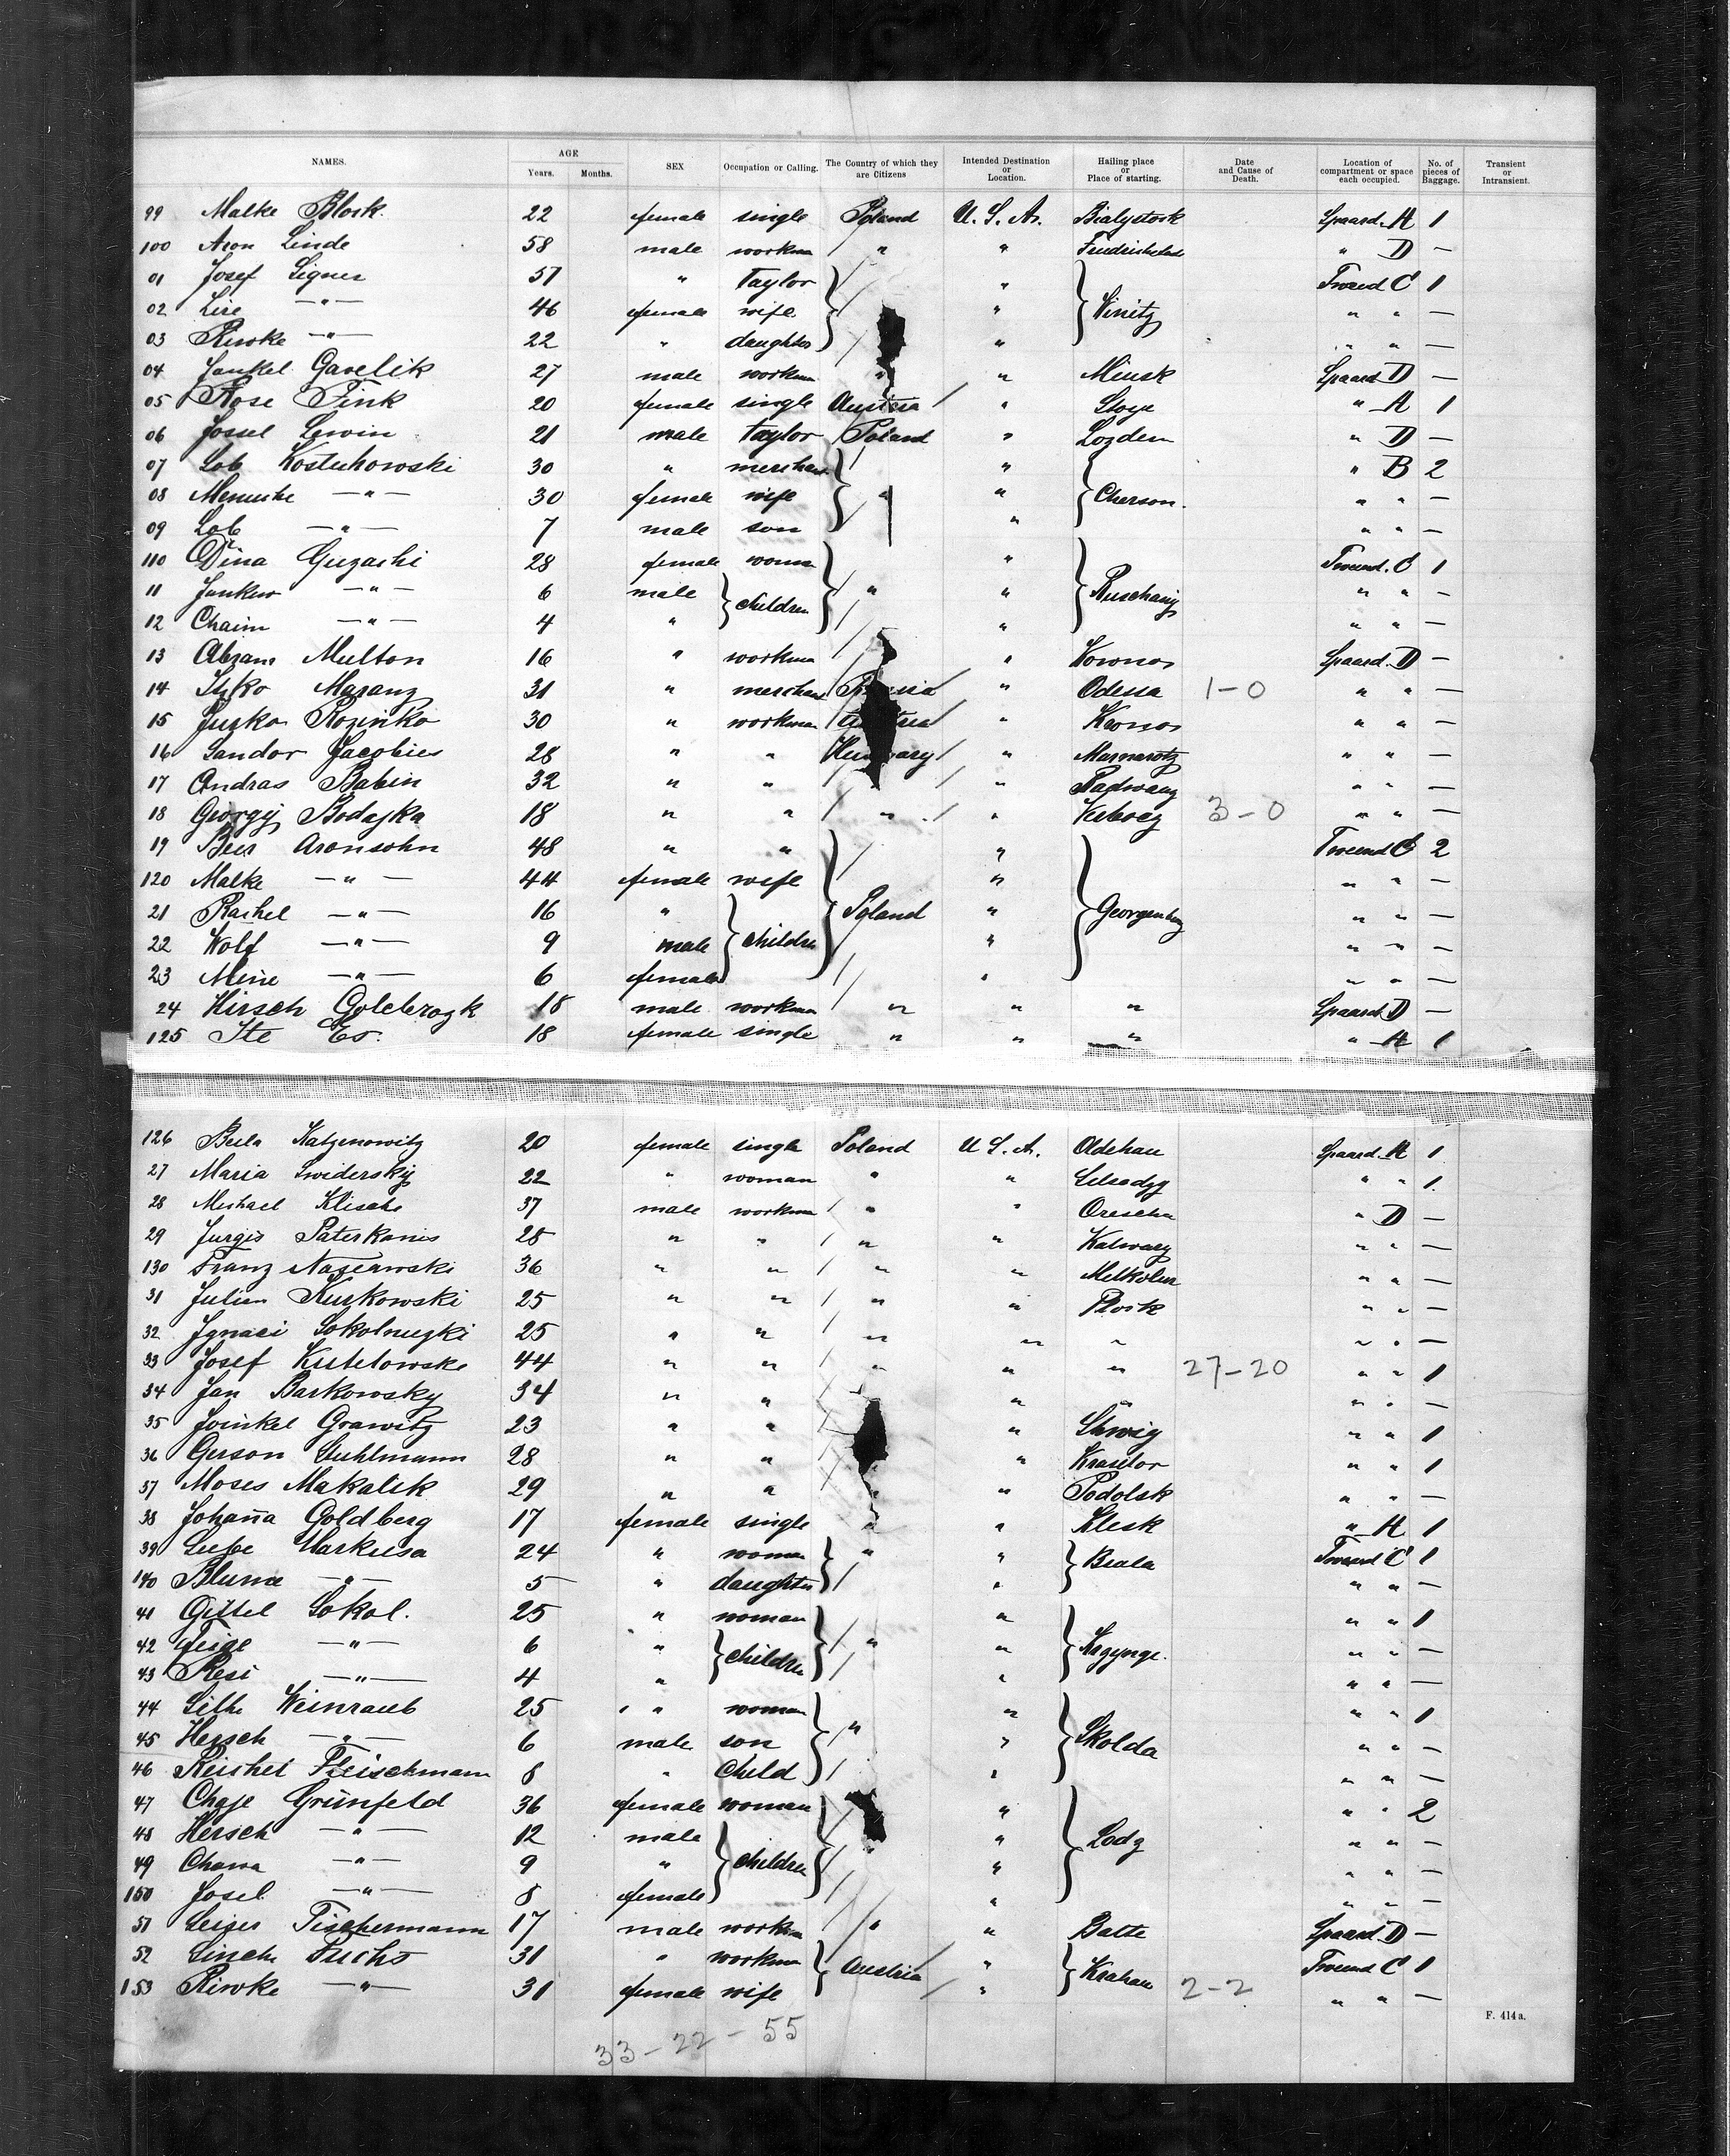 NAMES. AGE Years. Months. SEX Occupation or Calling. The Country of which they are Citizens Intended Destination or Location. Hailing place or Place of starting. Date and Cause of Death. Location of compartment or space each occupied. No. of pieces of Baggage. Transient or Intransient.
99 Malke Block 22 female single Poland U. S. A. Bialystock Spaard. A 1
100 Aron Linde 58 male workman " " " D —
01 Josef Signer 57 " taylor " C 1
02 Lire —"— 46 female wife " Winitz " " —
03 Riwke —"— 22 " daughter " " " —
04 Jankel Gavelik 27 male workman " " Minsk Spaard D —
05 Rose Fink 20 female single Austria " " A 1
06 Jossel Lewin 21 male taylor Poland " Lozdem " D —
07 Lob Kostuhowski 30 " merchant " " B 2
08 Menushe —"— 30 female wife " " Cherson. " " —
09 Lob —"— 7 male son " " " —
110 Dina Guzashi 28 female woman " C 1
11 Jankew —"— 6 male children " " Ruschany " " —
12 Chaim —"— 4 " " " " —
13 Abram Multon 16 " workman " Kownos Spaard. D —
14 Itzko Maranz 31 " merchant " Odessa 1-0 " " —
15 Juzko Rozinko 30 " workman Austria " Kownos " " —
16 Sandor Jacobies 28 " " Hungary " Marmarotz " " —
17 Andras Babin 32 " " " Radwanz " " —
18 Georgij Bodajka 18 " " " " 3-0 " " —
19 Beer Aronsohn 48 " " " C 2
120 Malke —"— 44 female wife " " " —
21 Rachel —"— 16 " Poland " Georgenburg " " —
22 Wolf —"— 9 male children " " " —
23 Meine —"— 6 female " " " —
24 Hirsch Golebrozk 18 male workman " " " Spaard D —
125 Ite Es. 18 female single " " " " A 1
126 Beila Katzenowitz 20 female single Poland U. S. A. Spaard. A 1
27 Maria Swiderskij 22 " woman " " " " 1
28 Michael Klische 37 male workman " " " D —
29 Jurgis Paterkonis 28 " " " " Kalwary " " —
130 Franz 36 " " " " " " —
31 Julian Kurkowski 25 " " " " Plock " " —
32 Ignaci 25 " " " " " " " —
33 Josef Kutelowske 44 " " " " " 27-20 " " 1
34 Jan Barkowsky 34 " " " " " " —
35 Joinkel Grawitz 23 " " " " " 1
36 Gerson Stuhlmann 28 " " " " " 1
37 Moses Makalik 29 " " " " Podolsk " " —
38 Johana Goldberg 17 female single " " Klesk " A 1
39 Liebe Markusa 24 " woman " " Biala C 1
140 Blume —"— 5 " daughter " " " —
41 Gittel Sokol. 25 " woman " " " 1
42 Feige —"— 6 " children " " " " —
43 Resi —"— 4 " " " " —
44 Weinraub 25 " woman " " " 1
45 Hersch —"— 6 male son " " Skolda " " —
46 Reishel Fleischmann 8 " Child " " " —
47 Chaje Grünfeld 36 female woman " " " 2
48 Hersch —"— 12 male " Lodz " " —
49 Chawa —"— 9 " children " " " " —
150 Josel —"— 8 female " " " —
51 Leiser Fischermann 17 male workman " " Balte Spaard. D —
52 Sinche Fuchs 31 " workman Austria " C 1
153 Riwke —"— 31 female wife " Krakau 2-2 " " —
F. 414a.
33-22-55